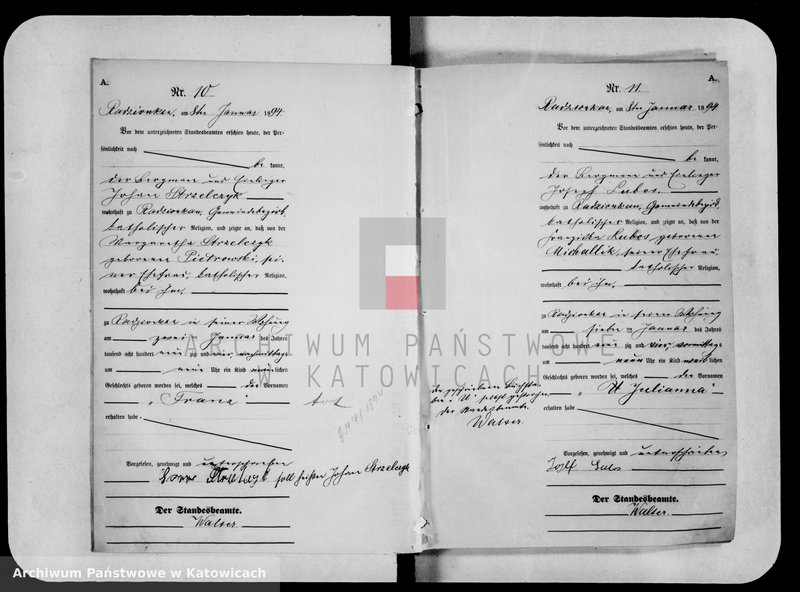 A.
Nr. 10
Radzionkau, am 8ten Januar 1894.
Vor dem unterzeichneten Standesbeamten erschien heute, der Per-
sönlichkeit nach
be kannt,
der Bergmann und Einlieger
Johan Strzelczyk
wohnhaft zu Radzionkau, Gemeindebezirk
katholischer Religion, und zeigte an, daß von der
Margaretha Strzelczyk
geborenen Pietrowski, sei-
ner Ehefrau, katholischer Religion,
wohnhaft bei ihm,
zu Radzionkau in seiner Wohnung
am zwei Januar des Jahres
tausend acht hundert neunzig und vier, vormittags
um neun Uhr ein Kind männlichen
Geschlechts geboren worden sei, welches den Vornamen
„Franz"
erhalten habe.
Vorgelesen, genehmigt und unterschrieben
Strzelczyk soll heißen Johan Strzelczyk
Der Standesbeamte.
Walser
tot
847/1894
A.
Nr. 11
Radzionkau, am 8ten Januar 1894
Vor dem unterzeichneten Standesbeamten erschien heute, der Per-
sönlichkeit nach
be kannt,
der Bergmann und Einlieger
Joseph Lubos
wohnhaft zu Radzionkau, Gemeindebezirk
katholischer Religion, und zeigte an, daß von der
Lubos geborenen
Michallik, seiner Ehefrau,
katholischer Religion,
wohnhaft bei ihm,
zu Radzionkau in seiner Wohnung
am sieben Januar des Jahres
tausend acht hundert neunzig und vier, vormittags
um neun Uhr ein Kind weiblichen
Geschlechts geboren worden sei, welches den Vornamen
„ Julianna"
erhalten habe.
Vorgelesen, genehmigt und unterschrieben
Josef
Der Standesbeamte.
Walser
der geschriebene Buchstabe
der Standesbeamte.
Walser
ARCHIWUM PAŃSTWOWE
W KATOWICACH
Archiwum Państwowe w Katowicach